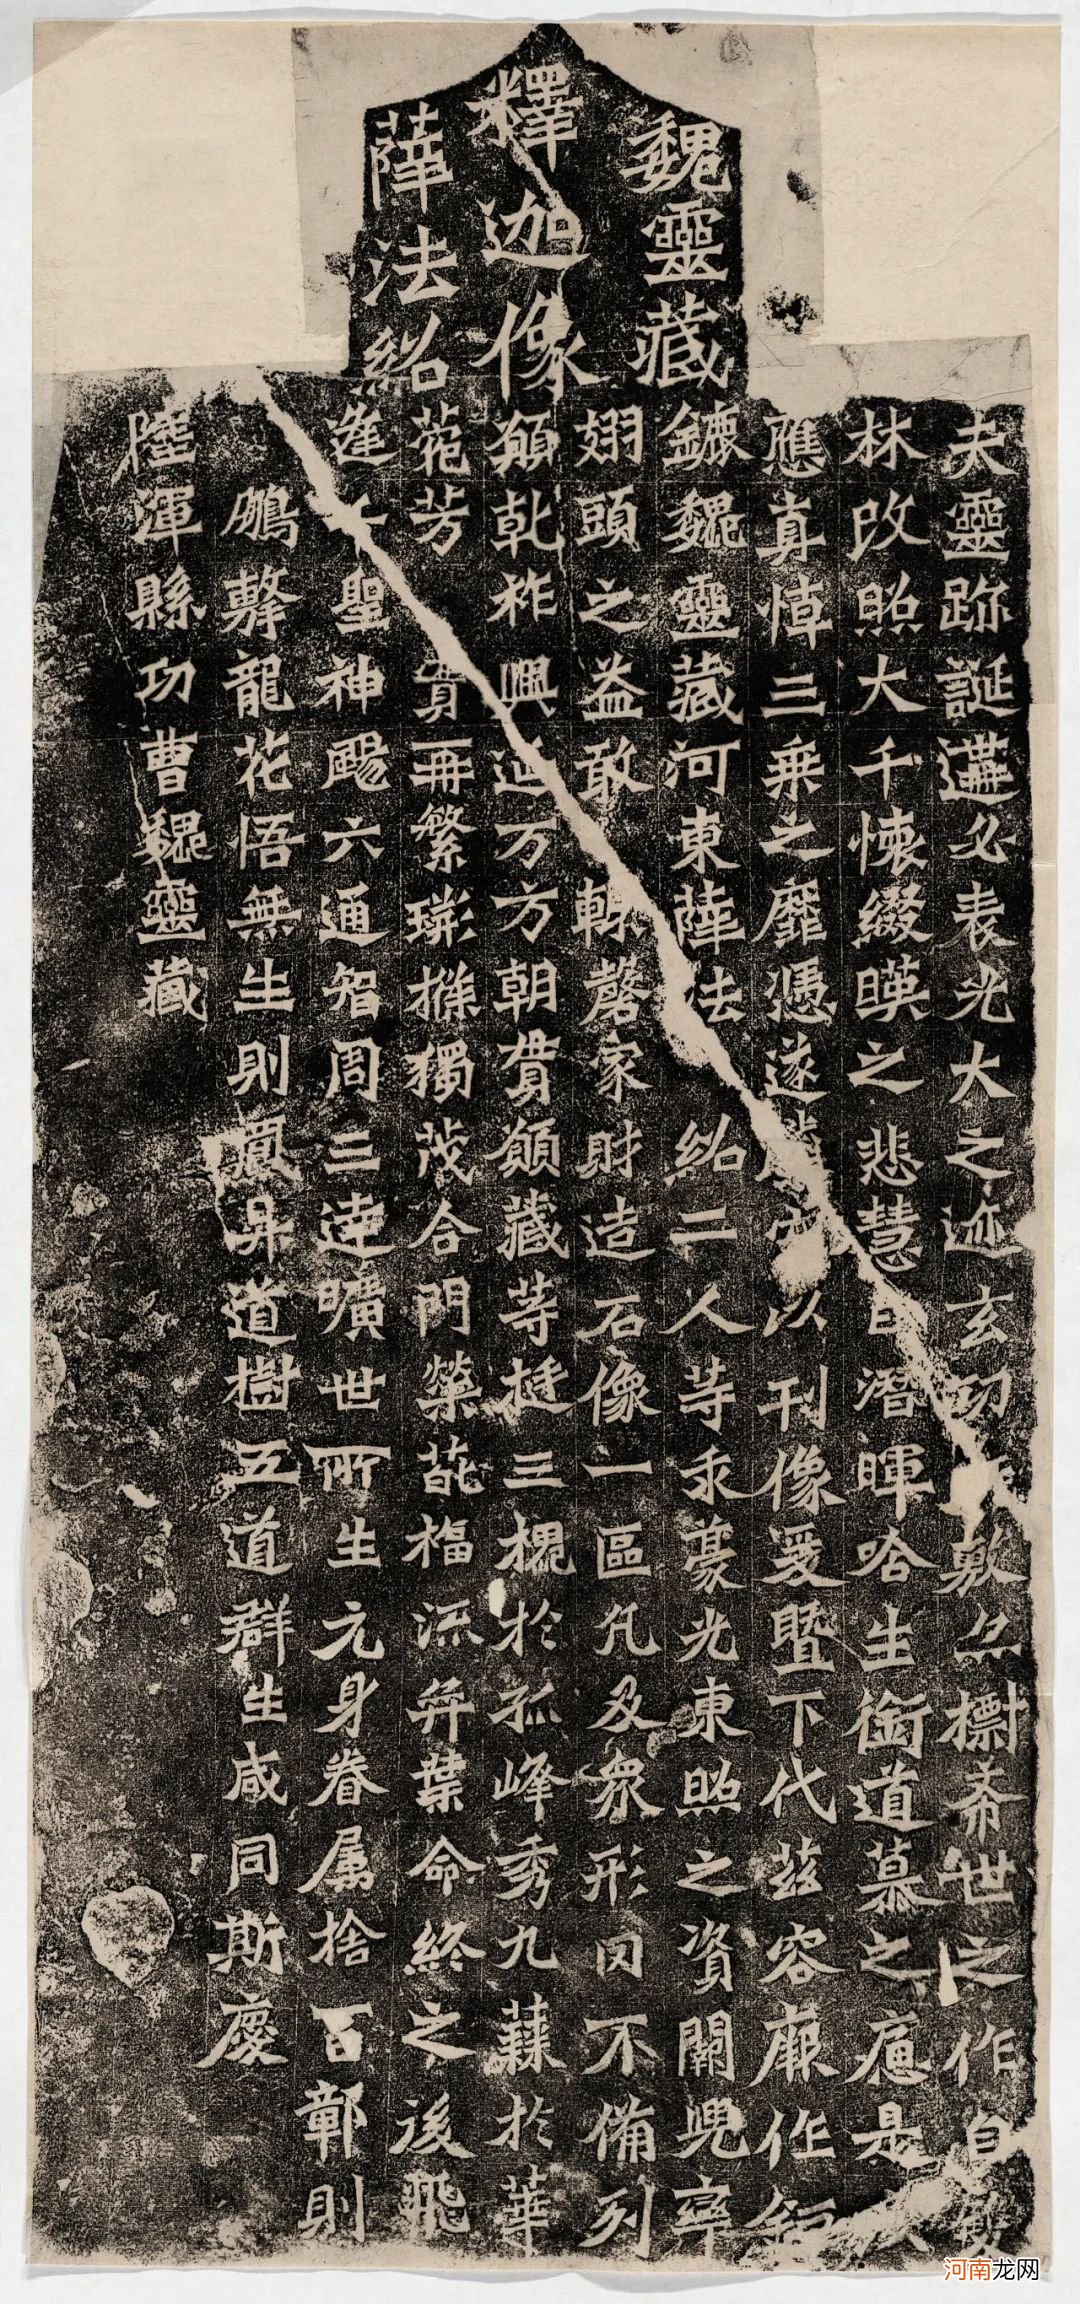 魏靈藏
釋迦像
薛法紹
夫靈跡誕遘必表光大之迹玄功敷亦標希世之作自
林改照大千懷綴暎之悲慧日潛暉唅生銜道慕之是
應真悼三乘之靡憑遂以刊像爰暨下代茲容厥作鉅
鏕魏靈藏河東薛法紹二人等乖豪光東照之資闕兜率
翅頭之益敢輒磬家財造石像一區凡及眾形罔不備列
願乾祚興延万方朝貫願藏等挺三槐於孤峰秀九蕀於華
菀芳實再繁條獨茂合門榮葩福流弈葉命終之後飛
逢千聖神颺六通智周三達曠世所生元身眷属捨百鄣則
鵬擊龍花悟無生則鳳昇道樹五道群生咸同斯慶
陸渾縣功曹魏靈藏
河南龙网